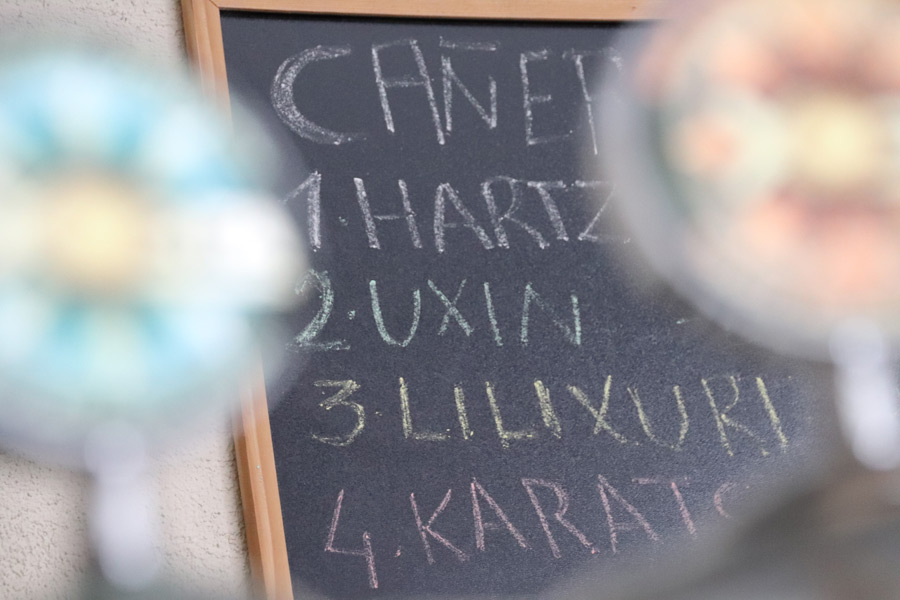 CAÑER
1. HARTZ
2. UXIN
3. LILIXURI
4. KARATS